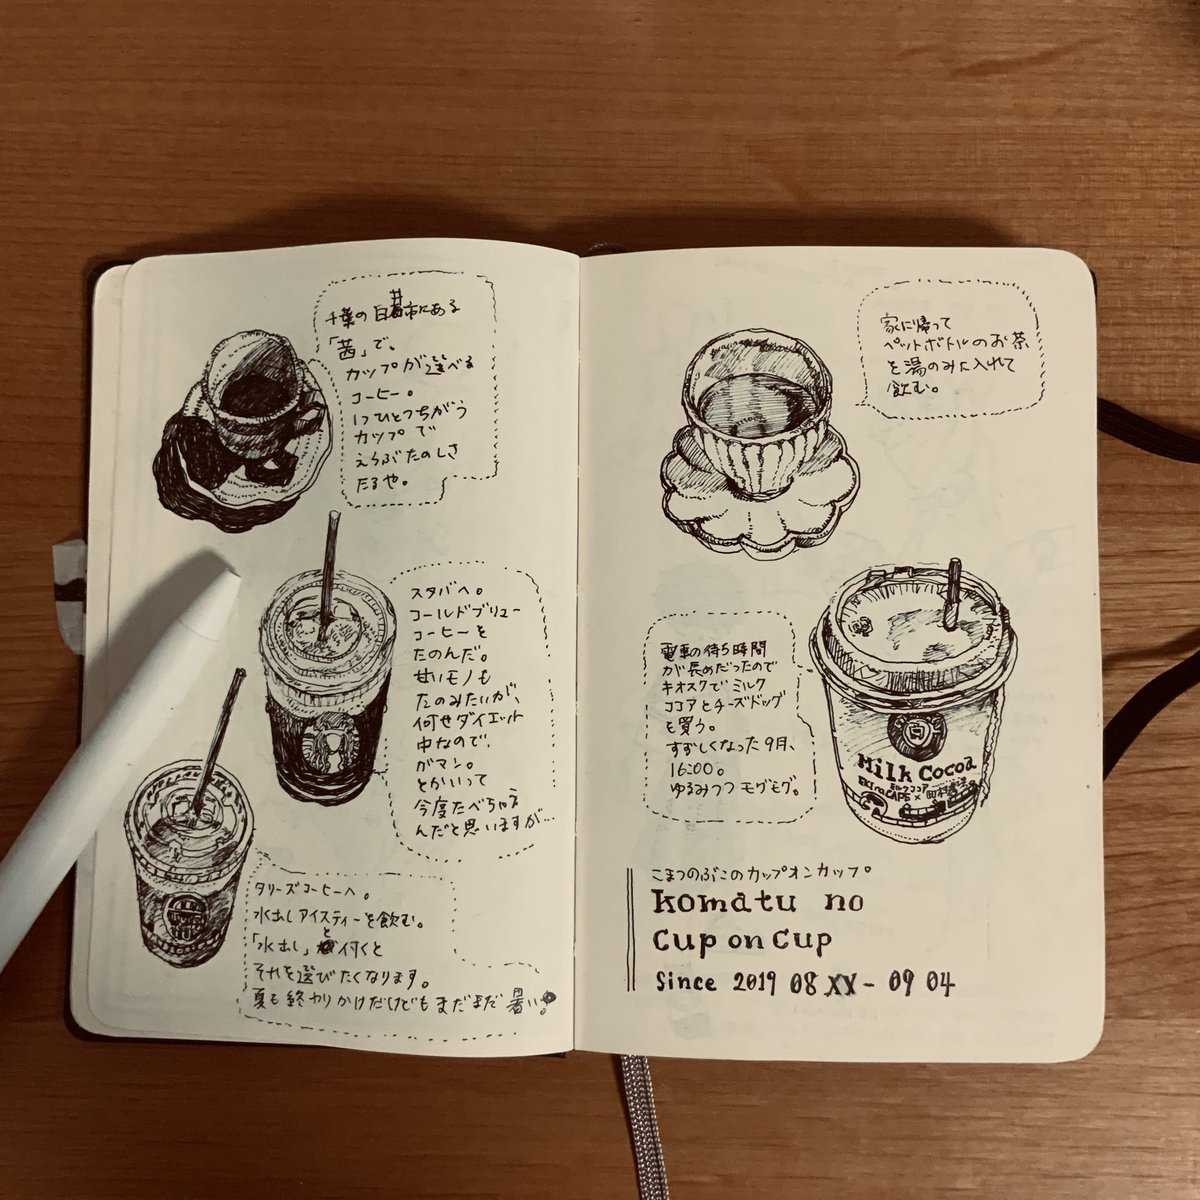 千葉の白井市にある
「茜」で、
カップが選べる
コーヒー。
1つひとつちがう
カップで
えらぶたのしさ
たるや。
スタバへ。
コールドブリュー
コーヒーを
たのんだ。
甘いモノも
たのみたいが、
何せダイエット
中なので、
ガマン。
とかいって
今度たべちゃう
んだと思いますが…
タリーズコーヒーへ。
水出しアイスティーを飲む。
「水出し」と付くと
それを選びたくなります。
夏も終わりかけだけどもまだまだ暑い!
家に帰って
ペットボトルのお茶
を湯のみに入れて
飲む。
電車の待ち時間
が長めだったので
キオスクでミルク
ココアとチーズドッグ
を買う。
すずしくなった9月、
16:00。
ゆるみつつモグモグ。
Milk Cocoa
ミルクココア
こまつのぶこのカップオンカップ。
komatu no
Cup on Cup
Since 2019 08 XX - 09 04